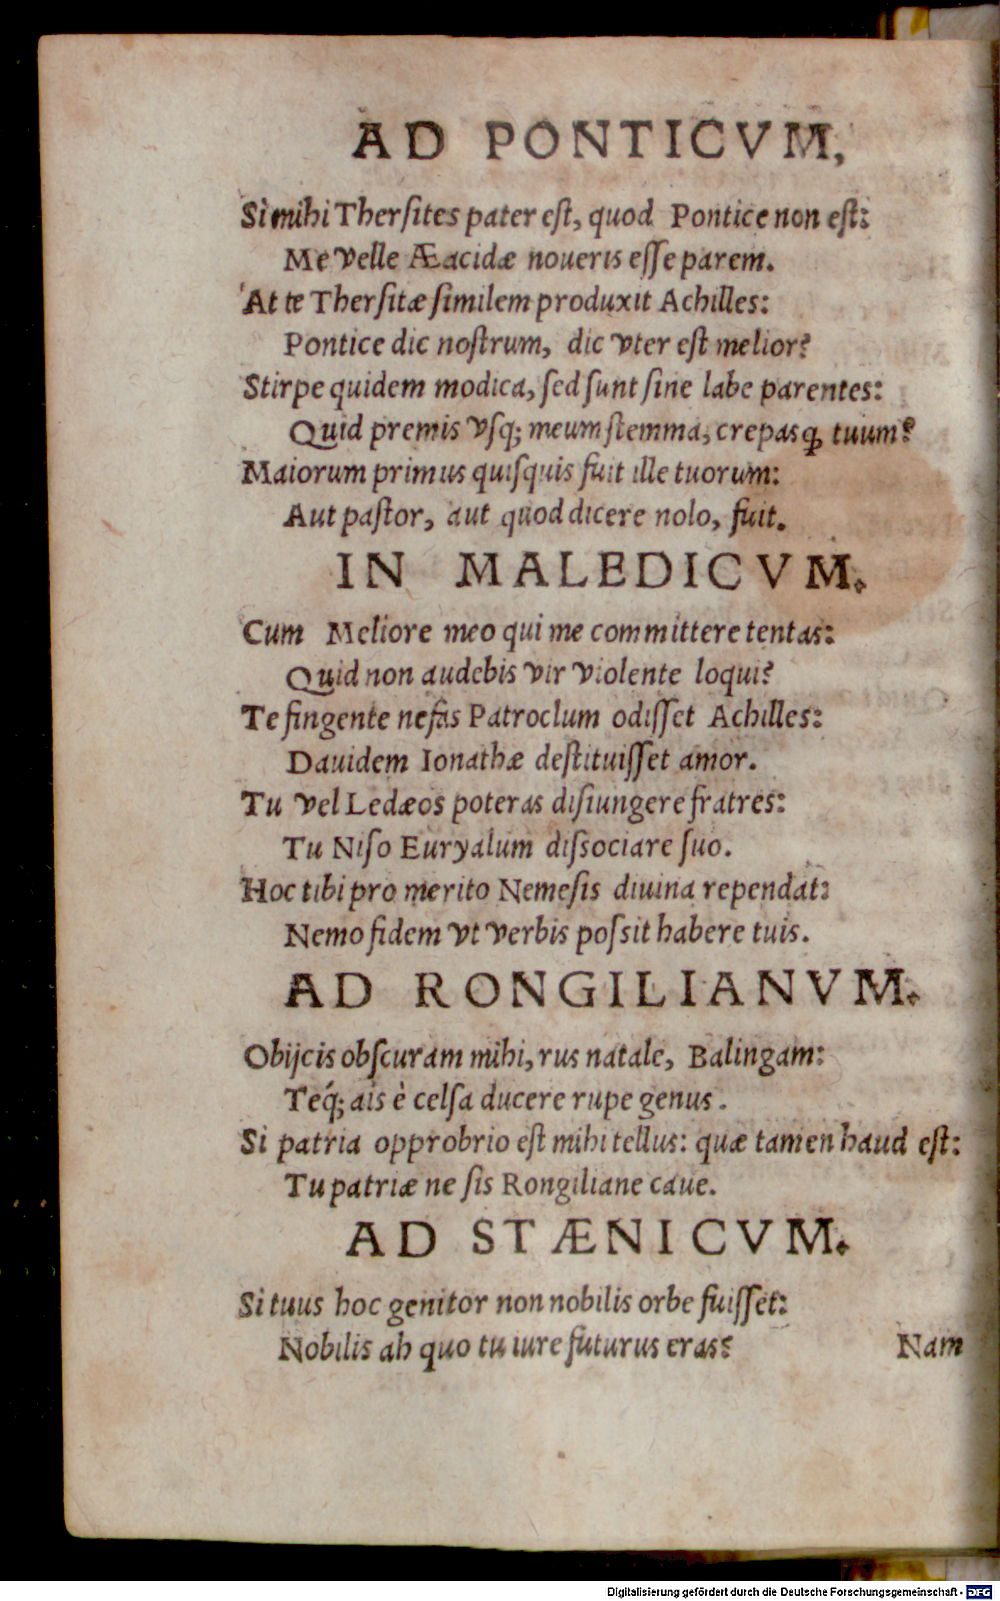 AD PONTICVM,
Si mihi Thersites pater est, quod Pontice non est:
Me velle Æacidæ noueris esse parem.
At te Thersitæ similem produxit Achilles:
Pontice dic nostrum, dic vter est melior?
Stirpe quidem modica, sed sunt sine labe parentes:
Quid premis vsq; meum stemma, crepasq; tuum?
Maiorum primus quisquis fuit ille tuorum:
Aut pastor, aut quod dicere nolo, fuit.
IN MALEDICVM.
Cum Meliore meo qui me committere tentas:
Quid non audebis vir violente loqui?
Te fingente nefas Patroclum odisset Achilles:
Dauidem Ionathæ destituisset amor.
Tu vel Ledæos poteras disiungere fratres:
Tu Niso Euryalum dissociare suo.
Hoc tibi pro merito Nemesis diuina rependat:
Nemo fidem vt verbis possit habere tuis.
AD RONGILIANVM.
Obijcis obscuram mihi, rus natale, Balingam:
Teq́; ais è celsa ducere rupe genus.
Si patria opprobrio est mihi tellus: quæ tamen haud est:
Tu patriæ ne sis Rongiliane caue.
AD STÆNICVM.
Si tuus hoc genitor non nobilis orbe fuisset:
Nobilis ah quo tu iure futurus eras?
Nam
Digitalisierung gefördert durch die Deutsche Forschungsgemeinschaft - DFG